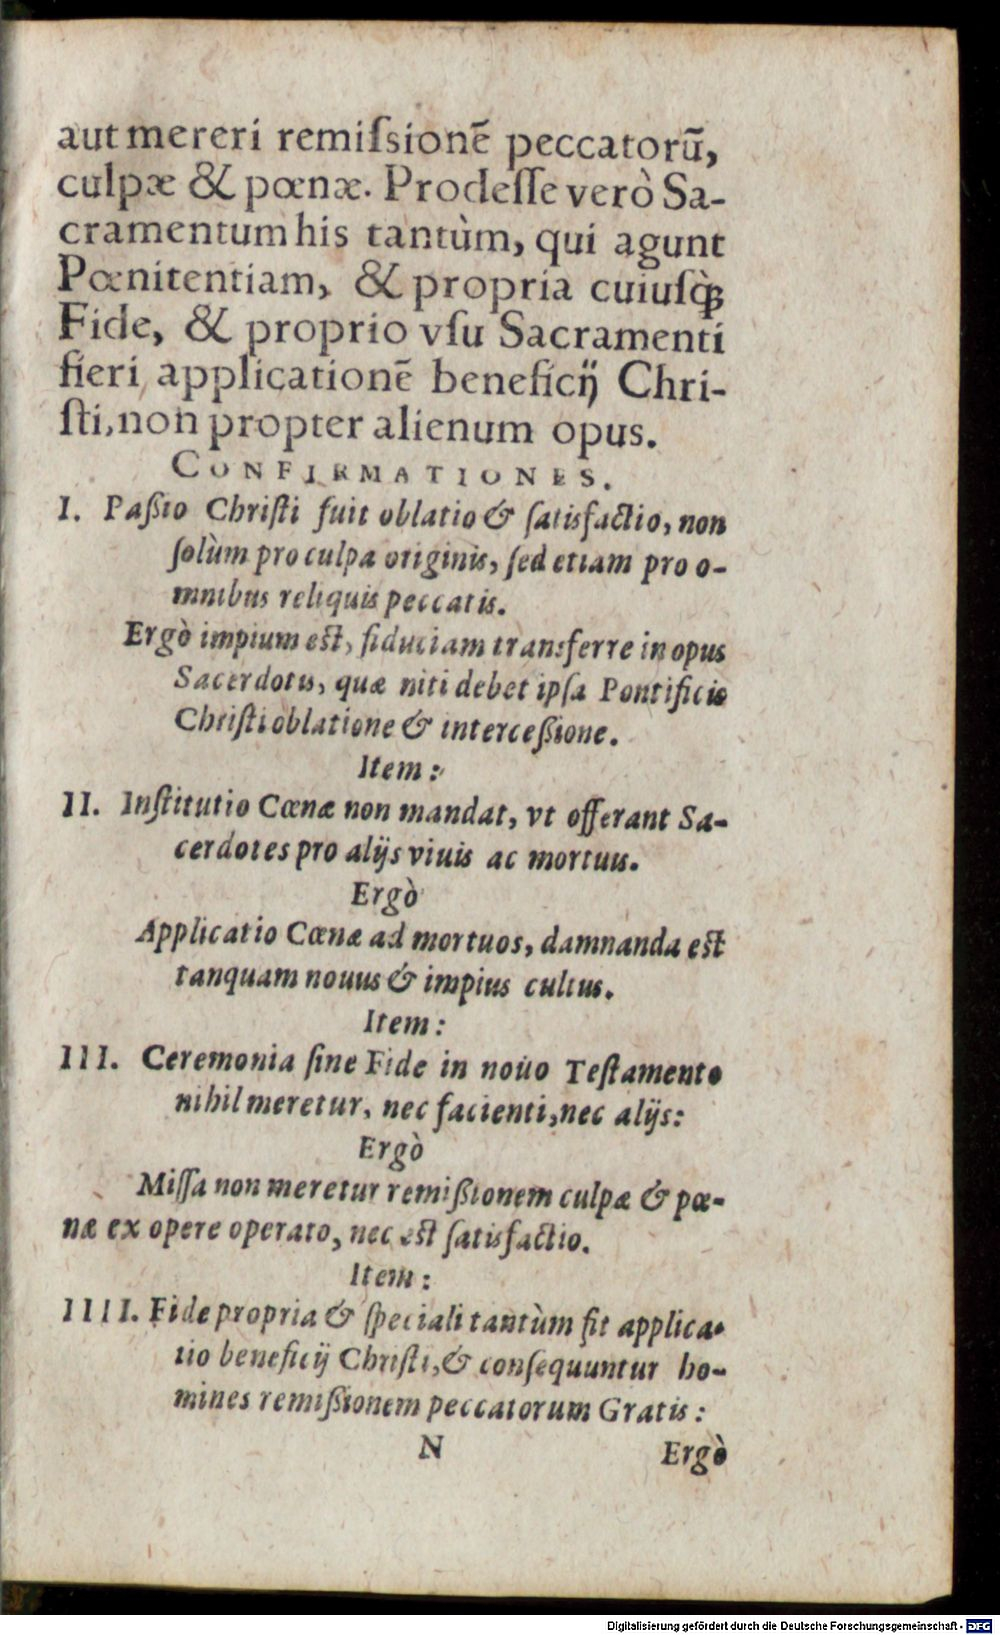 aut mereri remiſsionē peccatorū,
culpæ & pœnæ. Prodeſſe verò Sa-
cramentum his tantùm, qui agunt
Pœnitentiam, & propria cuiuſq́;
Fide, & proprio vſu Sacramenti
fieri applicationē beneficij Chri-
ſti, non propter alienum opus.
CONFIRMATIONES.
I. Paßio Chriſti fuit oblatio & ſatisfactio, non
ſolùm pro culpa originis, ſed etiam pro o-
mnibus reliquis peccatis.
Ergò impium eſt, fiduciam transferre in opus
Sacerdotis, quæ niti debet ipſa Pontificis
Chriſti oblatione & interceßione.
Item:
II. Inſtitutio Cœnæ non mandat, vt offerant Sa-
cerdotes pro alijs viuis ac mortuis.
Ergò
Applicatio Cœnæ ad mortuos, damnanda eſt
tanquam nouus & impius cultus.
Item:
III. Ceremonia ſine Fide in nouo Teſtamento
nihil meretur, nec facienti, nec alijs:
Ergò
Miſſa non meretur remißionem culpæ & pœ-
næ ex opere operato, nec eſt ſatisfactio.
Item:
IIII. Fide propria & ſpeciali tantùm fit applica-
tio beneficij Chriſti, & conſequuntur ho-
mines remißionem peccatorum Gratis:
N Ergò
Digitalisierung gefördert durch die Deutsche Forschungsgemeinschaft - DFG